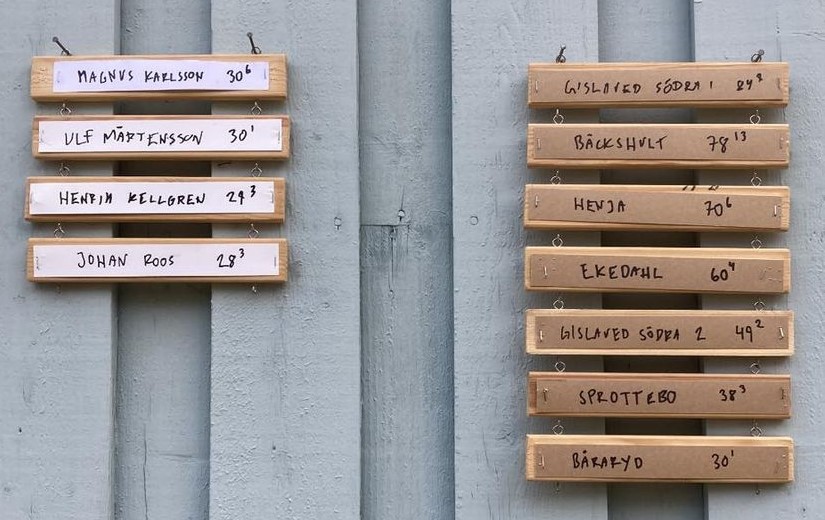 MAGNUS KARLSSON 30⁶
ULF MÅRTENSSON 30¹
HENRIK KELLGREN 29³
JOHAN ROOS 28³
GISLAVED SÖDRA 1
BÄCKSHULT 78¹³
HENJA 70⁶
EKEDAHL 60⁴
GISLAVED SÖDRA 2 49²
SPROTTEBO 38³
BÅRARYD 30¹